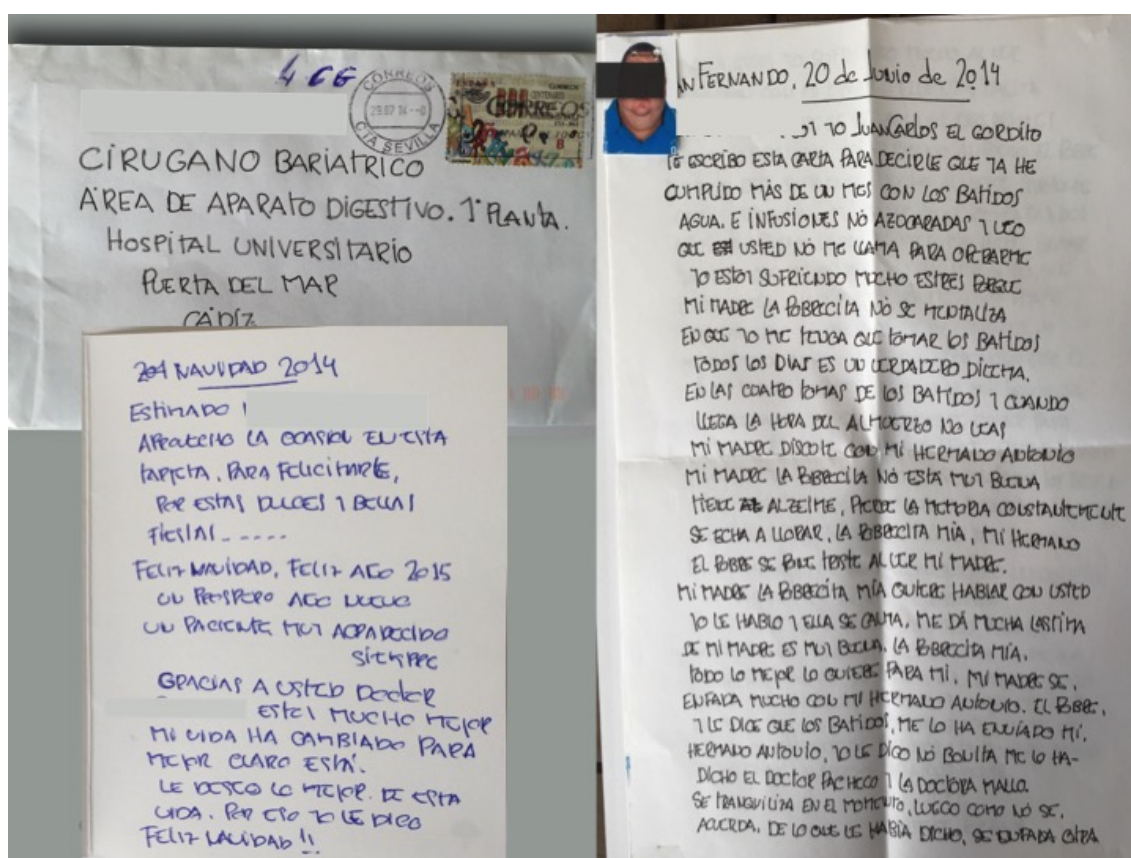 4 CG
CORREOS
29.07.14
CTA SEVILLA
ESPAÑA
CORREOS
CIRUGANO BARIATRICO
AREA DE APARATO DIGESTIVO. 1ª PLANTA.
HOSPITAL UNIVERSITARIO
PUERTA DEL MAR
CÁDIZ
NAVIDAD 2014
ESTIMADO
APROVECHO LA OCASION EN ESTA
TARJETA, PARA FELICITARLE,
POR ESTAS DULCES Y BELLAS
FIESTAS.....
FELIZ NAVIDAD, FELIZ AÑO 2015
UN PROSPERO AÑO NUEVO
UN PACIENTE MUY AGRADECIDO
SIEMPRE
GRACIAS A USTED DOCTOR
ESTOY MUCHO MEJOR
MI VIDA HA CAMBIADO PARA
MEJOR CLARO ESTÁ.
LE DESEO LO MEJOR DE ESTA
VIDA. POR ESO YO LE DIGO
FELIZ NAVIDAD!!
AN FERNANDO, 20 de Junio de 2014
YO JUAN CARLOS EL GORDITO
LE ESCRIBO ESTA CARTA PARA DECIRLE QUE YA HE
CUMPLIDO MÁS DE UN MES CON LOS BATIDOS
AGUA. E INFUSIONES NO AZUCARADAS Y VEO
QUE USTED NO ME LLAMA PARA OPERARME
YO ESTOY SUFRIENDO MUCHO ESTRES PORQUE
MI MADRE LA POBRECITA NO SE MENTALIZA
EN QUE YO ME TENGA QUE TOMAR LOS BATIDOS
TODOS LOS DIAS ES UN VERDADERO DILEMA.
EN LAS CUATRO TOMAS DE LOS BATIDOS Y CUANDO
LLEGA LA HORA DEL ALMUERZO NO VEAS
MI MADRE DISCUTE CON MI HERMANO ANTONIO
MI MADRE LA POBRECITA NO ESTÁ MUY BUENA
TIENE ALZEIME, PIERDE LA MEMORIA CONSTANTEMENTE
SE ECHA A LLORAR, LA POBRECITA MÍA, MI HERMANO
EL POBRE SE PONE TRISTE AL VER MI MADRE.
MI MADRE LA POBRECITA MÍA QUIERE HABLAR CON USTED
YO LE HABLO Y ELLA SE CALMA, ME DÁ MUCHA LASTIMA
DE MI MADRE ES MUY BUENA. LA POBRECITA MÍA.
TODO LO MEJOR LO QUIERE PARA MÍ. MI MADRE SE.
ENFADA MUCHO CON MI HERMANO ANTONIO. EL POBRE.
Y LE DICE QUE LOS BATIDOS, ME LO HA ENVIADO MÍ.
HERMANO ANTONIO, YO LE DIGO NO BONITA ME LO HA-
DICHO EL DOCTOR PACHECO Y LA DOCTORA MALLO.
SE TRANQUILIZA EN EL MOMENTO, LUEGO COMO NO SE.
ACUERDA, DE LO QUE LE HABÍA DICHO, SE ENFADA OTRA